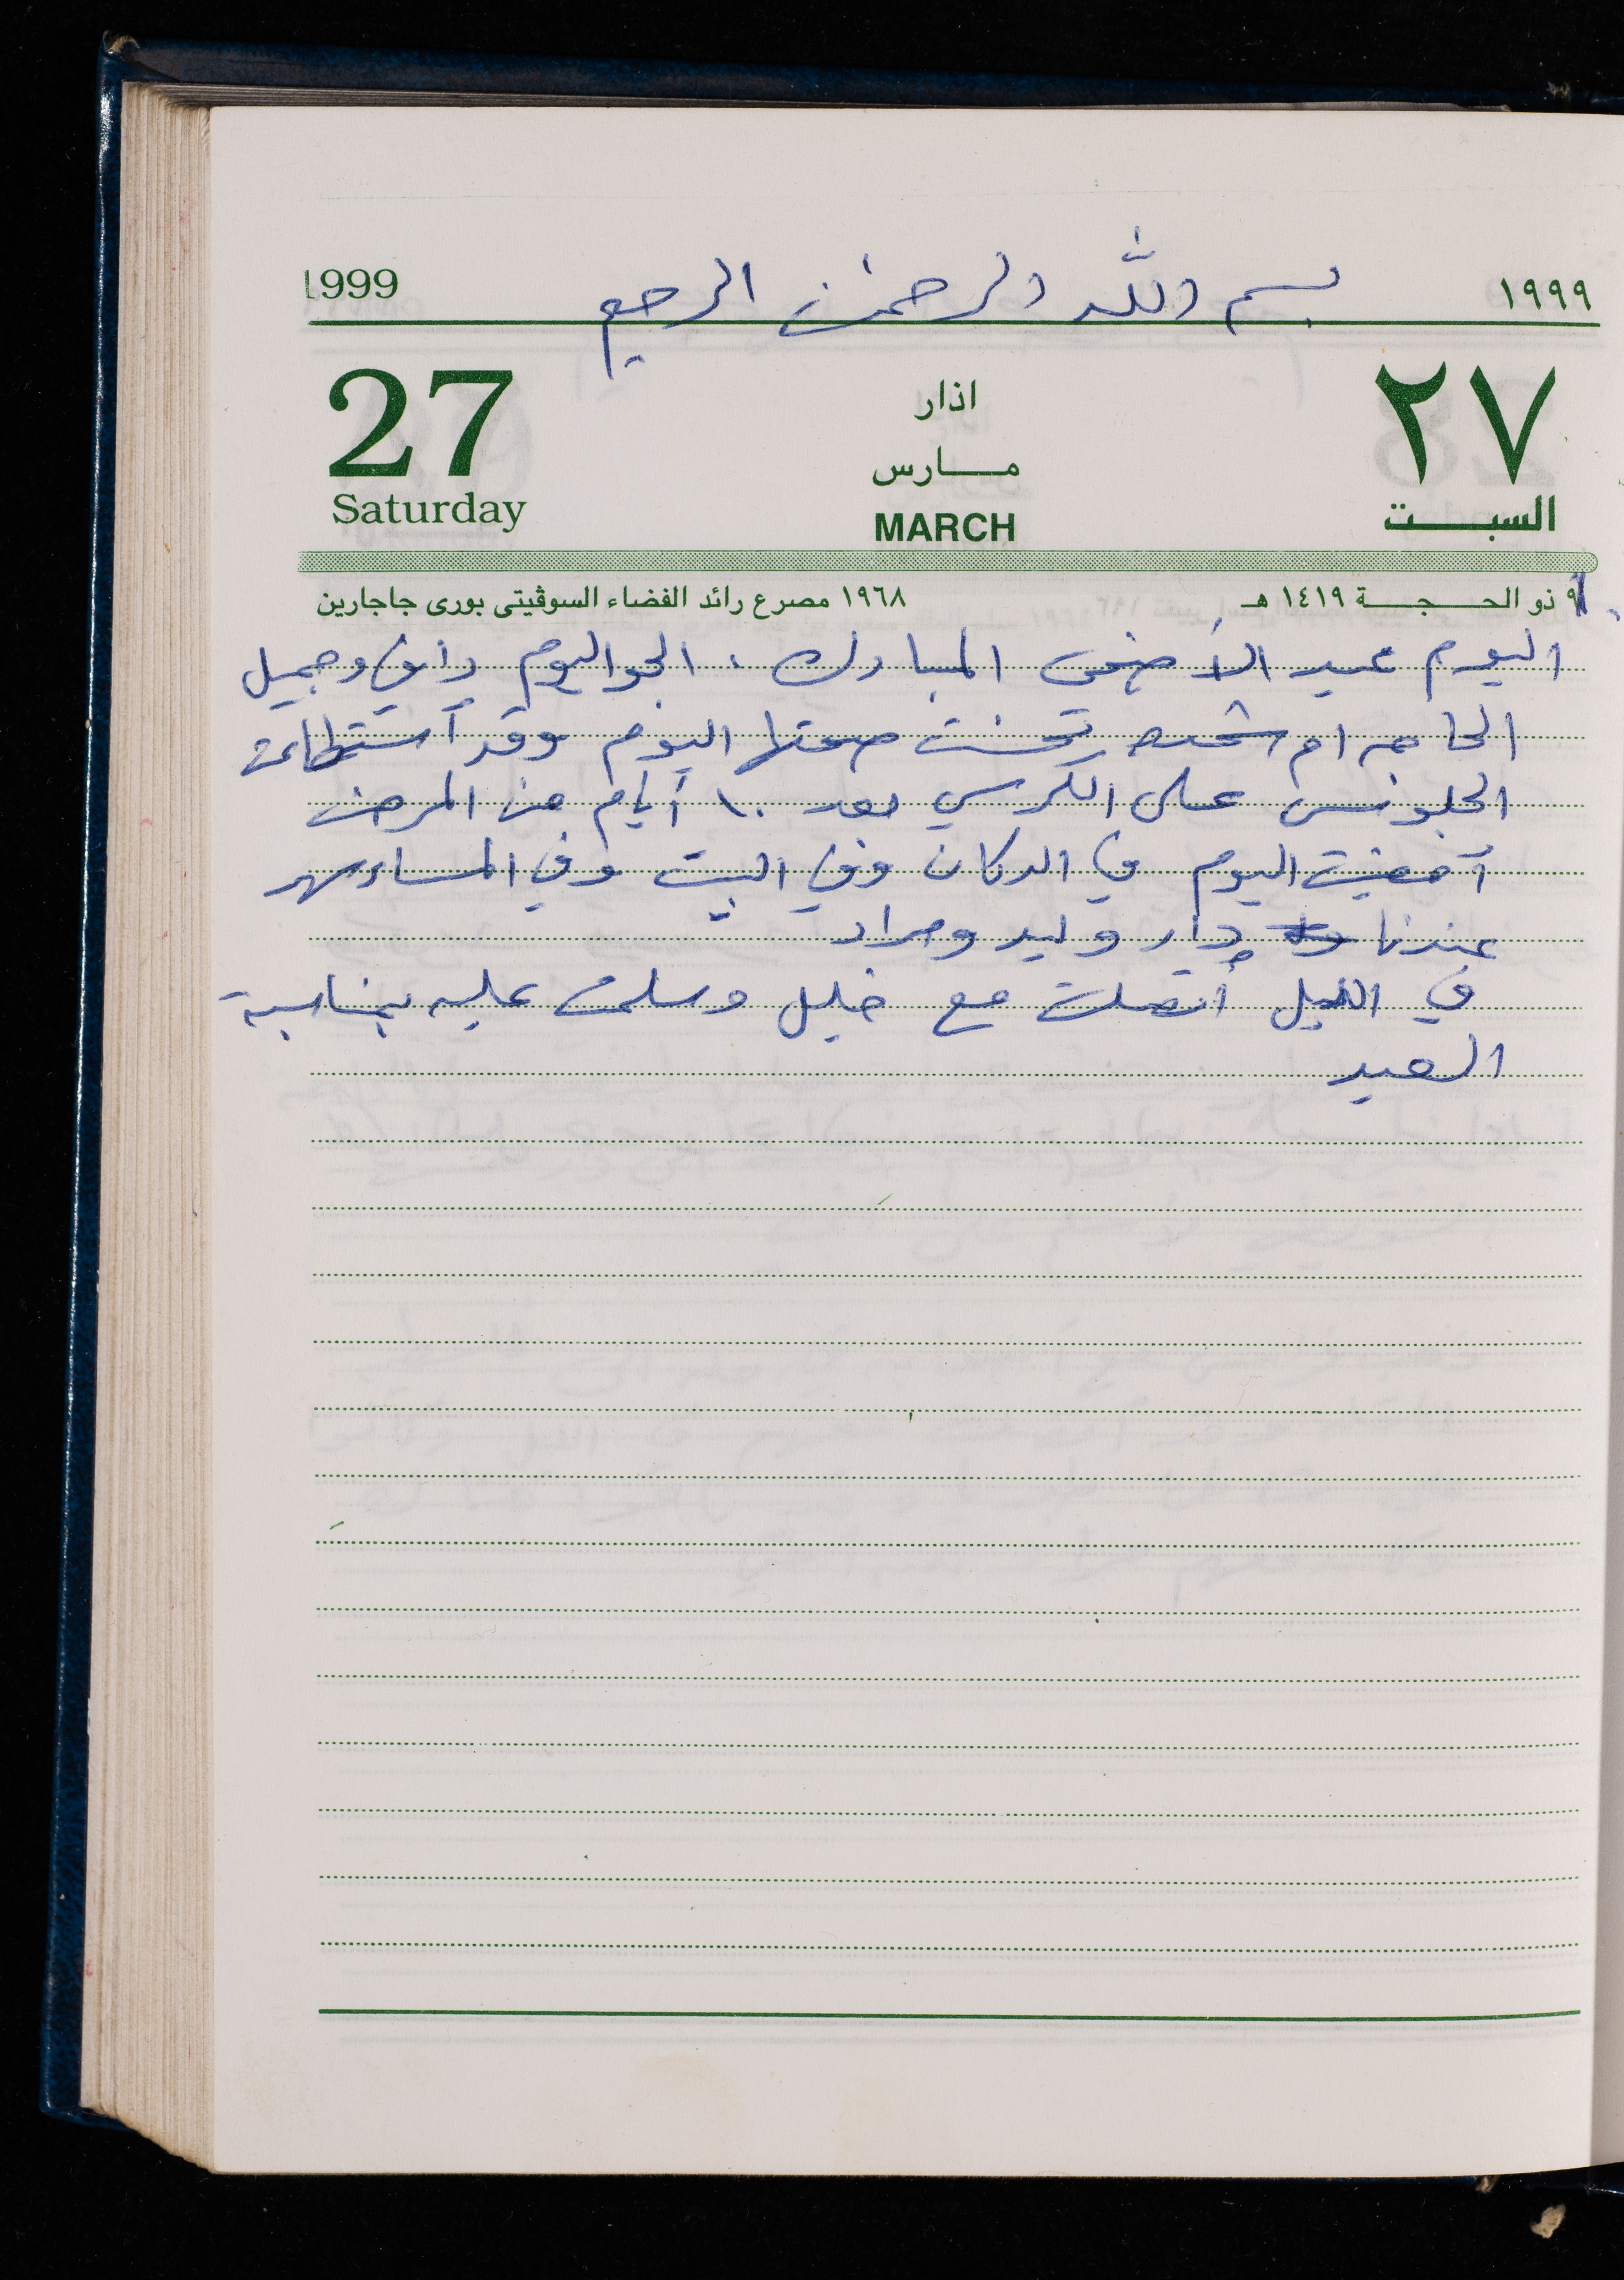 1999 بسم الله الرحمن الرحيم ١٩٩٩
27 اذار ٢٧
مارس
Saturday MARCH السبت
٩ ذو الحجة ١٤١٩ هـ ١٩٦٨ مصرع رائد الفضاء السوڤيتى بورى جاجارين
اليوم عيد الأضحى المبارك . الجو اليوم رائق وجميل
الحاجه ام شحده تحسنت صحتها اليوم وقد آستطاعت
الجلوس على الكرسي بعد ١٠ أيام من المرض
آمضيت اليوم في الدكان وفي البيت وفي المساء سهر
عندنا دار وليد ومراد
في الليل أتصلت مع خليل وسلمت عليه بمناسبة
العيد